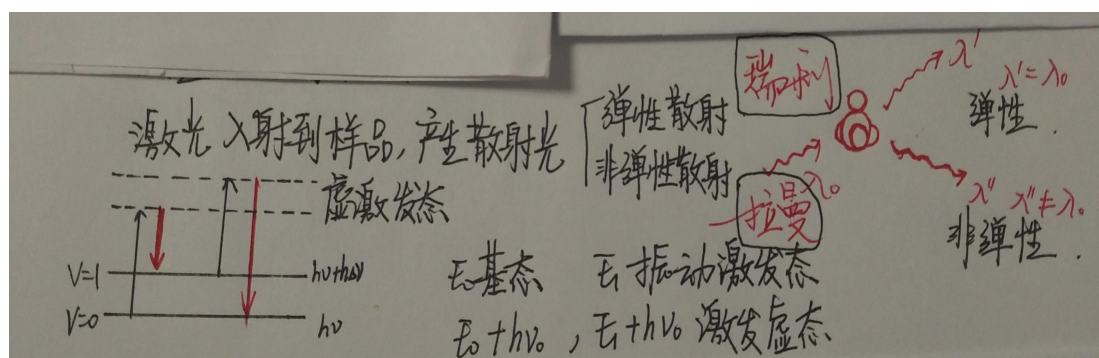 激光入射到样品,产生散射光
弹性散射
非弹性散射
瑞利
拉曼
λ₀
λ'
λ'=λ₀
弹性.
λ''
λ''≠λ₀
非弹性.
虚激发态
V=1
hν+hΔν
V=0
hν
E₀基态 E₁振动激发态
E₀+hν₀, E₁+hν₀ 激发虚态